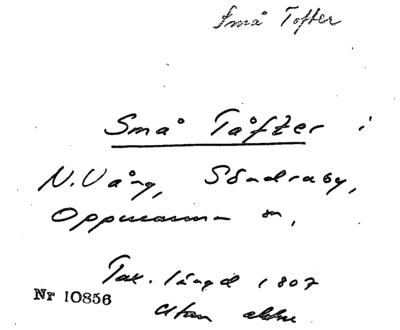 Små Tofter
Små Tåfter i
N. Vång, Söndraby,
Oppmanna sn,
Tax. längd 1807
Nr 10856
utan ålder